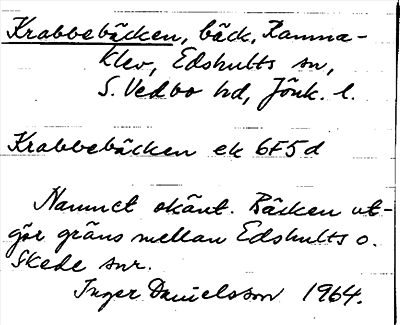 Krabbebäcken, bäck, Ramna-
klev, Edshults sn,
S. Vedbo hd, Jönk. l.
Krabbebäcken ek 6F5d
Namnet okänt. Bäcken ut-
gör gräns mellan Edshults o.
Skede snr.
Inger Danielsson 1964.